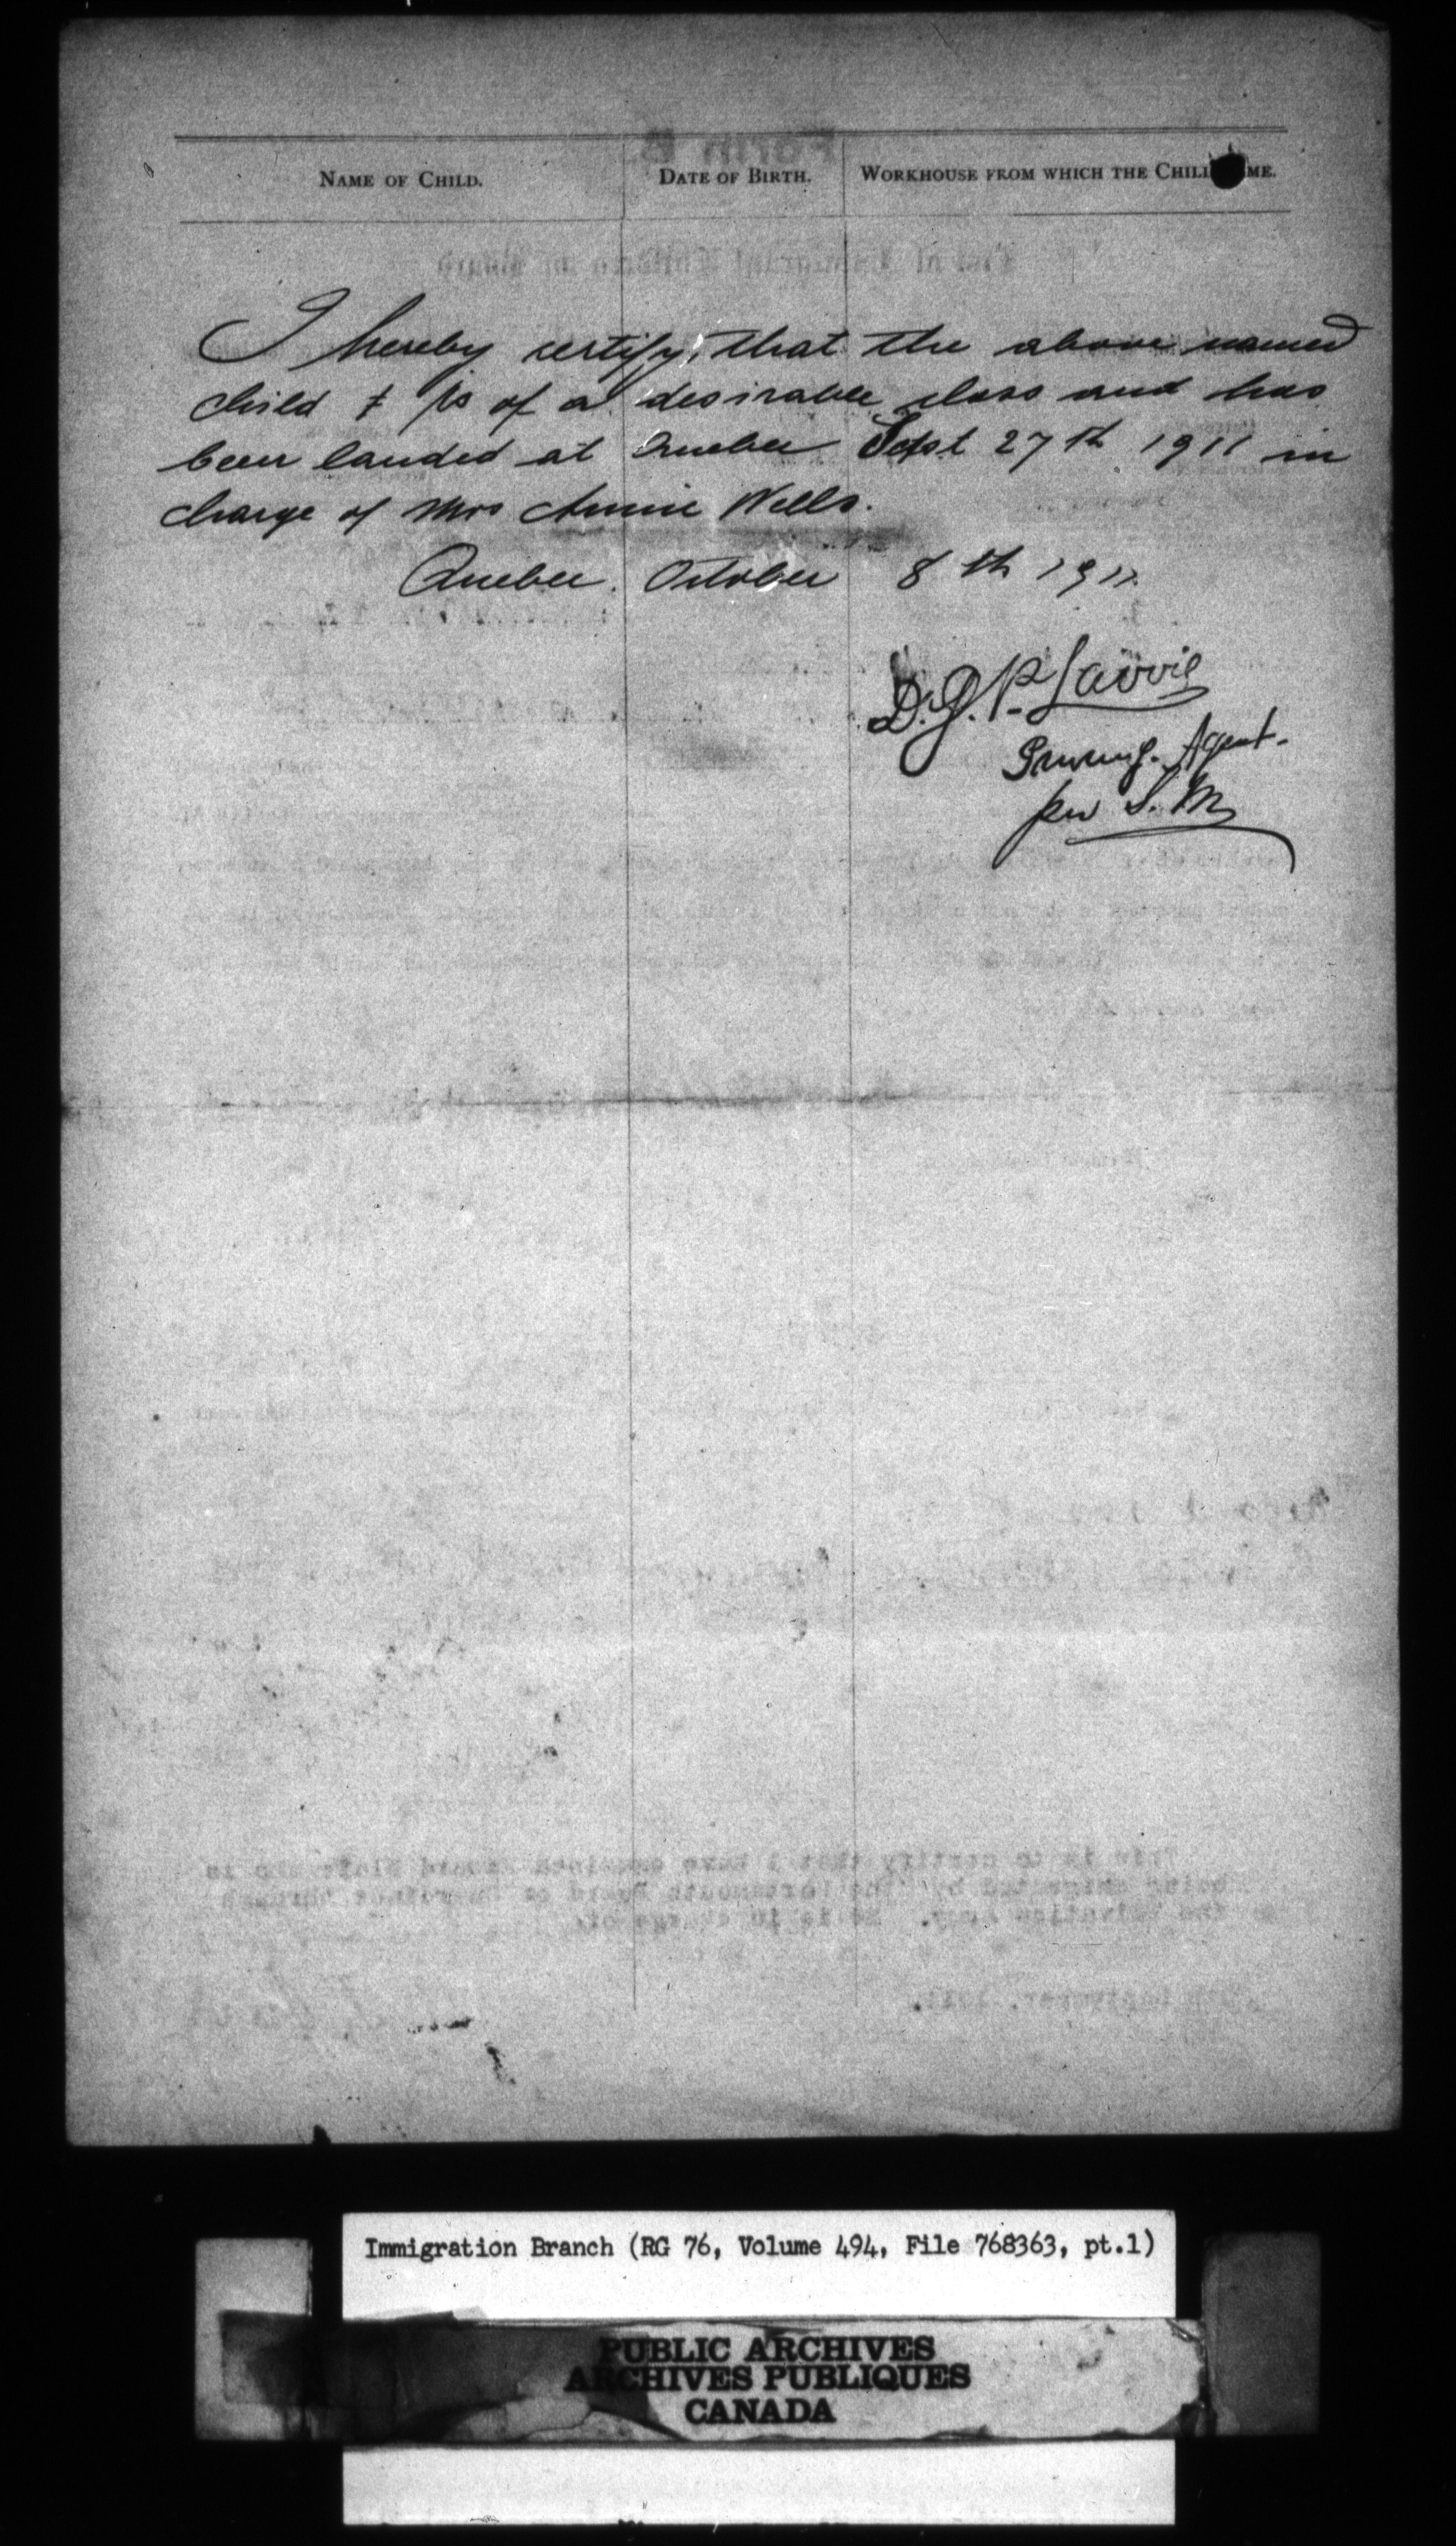 NAME OF CHILD. DATE OF BIRTH. WORKHOUSE FROM WHICH THE CHILD ME.
I hereby certify, that the above named
child is of a desirable class and has
been landed at Quebec Sept 27th 1911 in
charge of Mrs Annie Wells.
Quebec. October 8th 1911
D.J.P.
Agent.
per S. M
Immigration Branch (RG 76, Volume 494, File 768363, pt.1)
PUBLIC ARCHIVES
ARCHIVES PUBLIQUES
CANADA